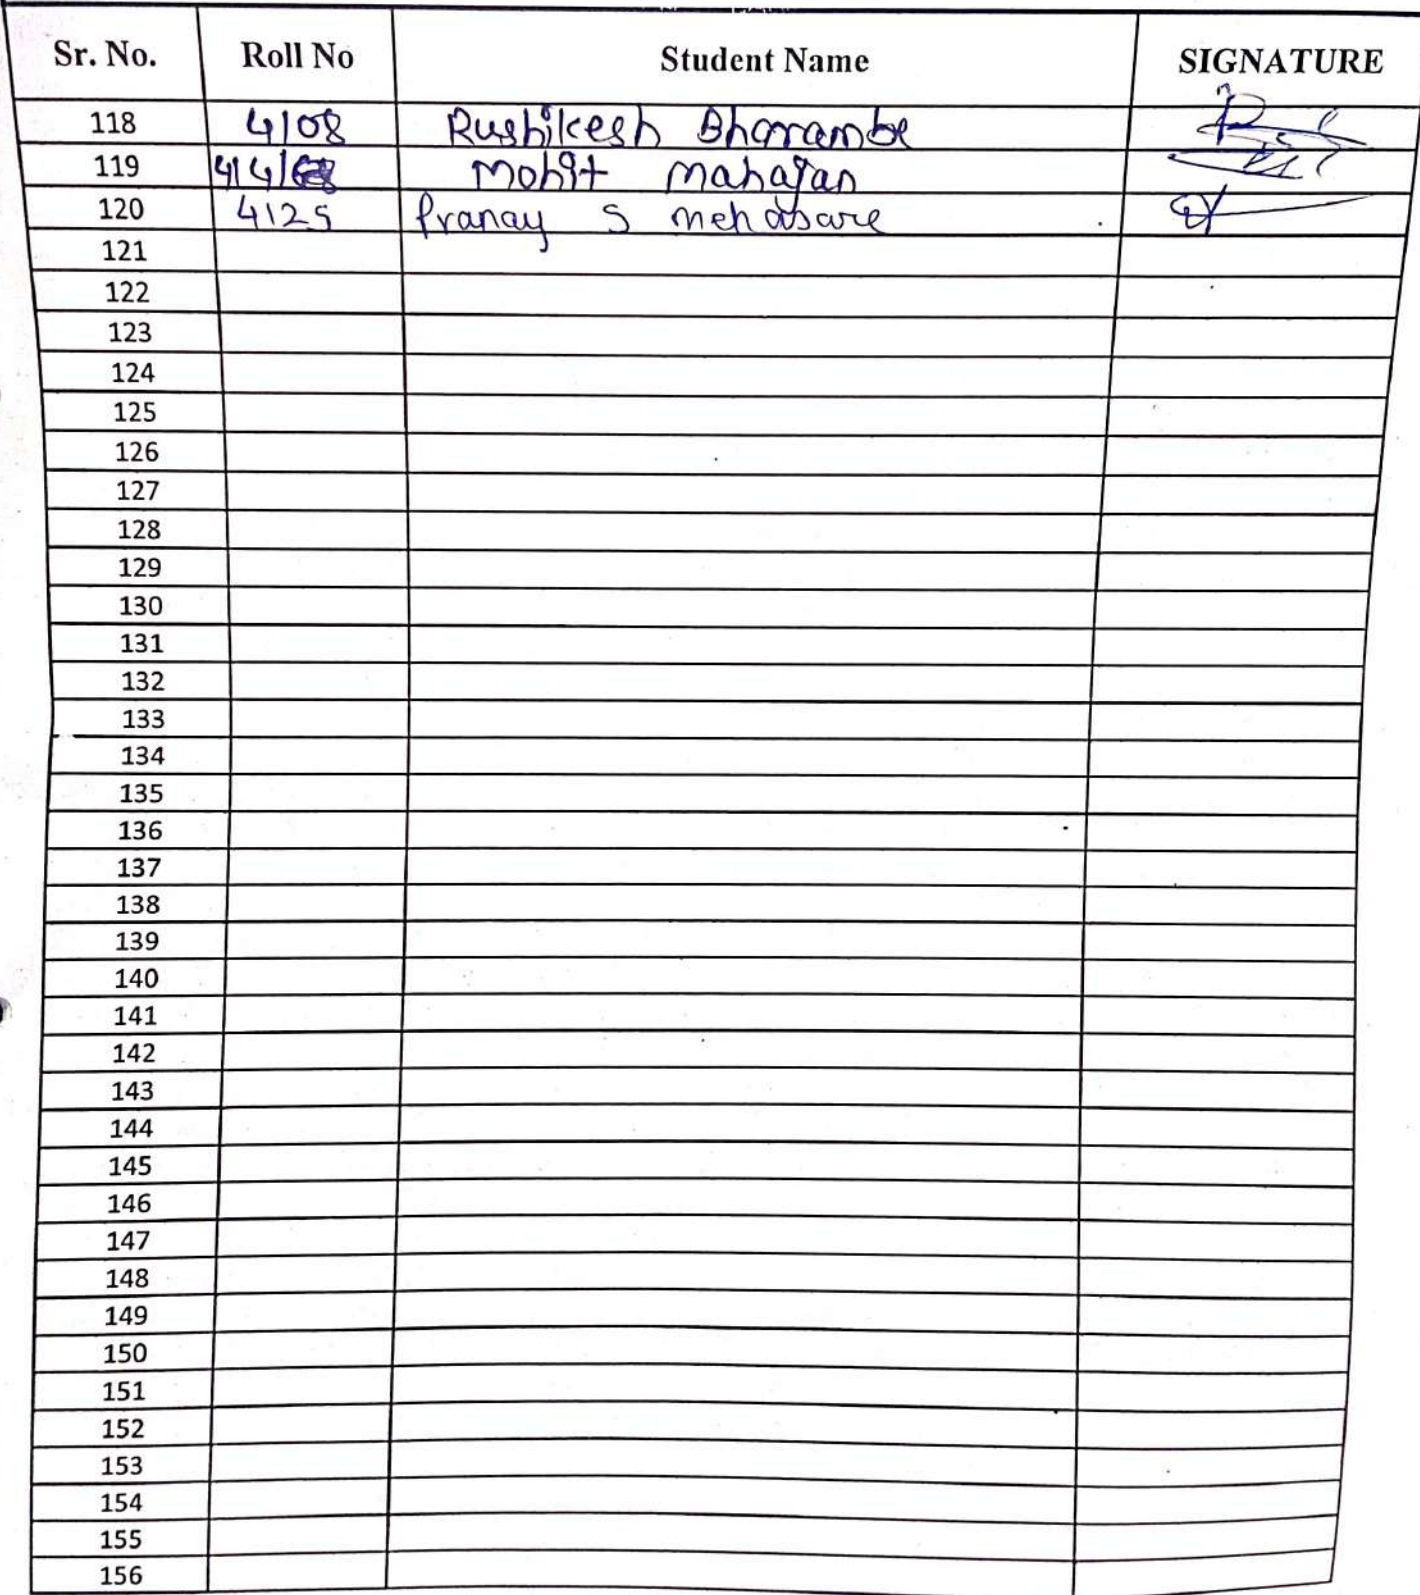 Sr. No. Roll No Student Name SIGNATURE
118 4108 Rushikesh Bharambe
119 Mohit Mahajan
120 4125 Pranay S Mehasare
121
122
123
124
125
126
127
128
129
130
131
132
133
134
135
136
137
138
139
140
141
142
143
144
145
146
147
148
149
150
151
152
153
154
155
156